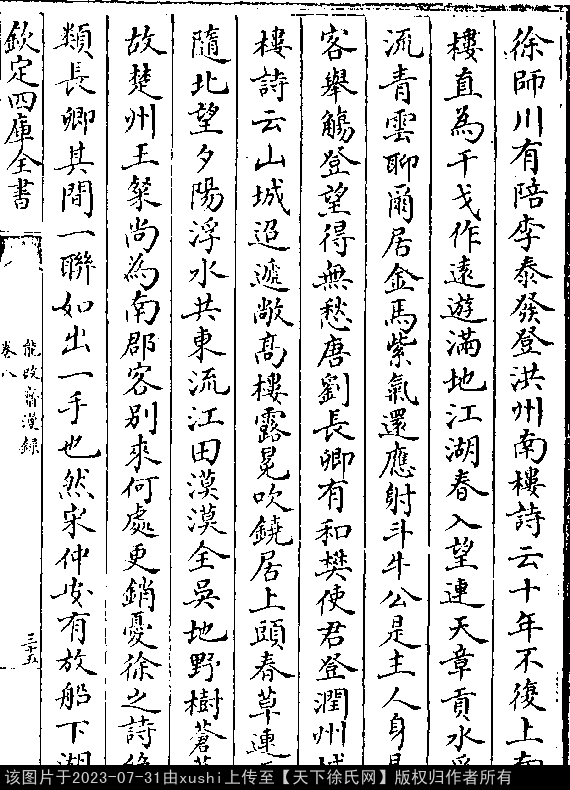 徐師川有陪李泰發登洪州南樓詩云十年不復上南
樓直為干戈作遠遊滿地江湖春入望連天章貢水爭
流青雲聊爾居金馬紫氣還應射斗牛公是主人身是
客舉觴登望得無愁唐劉長卿有和樊使君登潤州城
樓詩云山城迢遞敞高樓露冕吹鐃居上頭春草連
隨北望夕陽浮水共東流江田漠漠全吳地野樹蒼蒼
故楚州王粲尚為南郡客別來何處更銷憂徐之詩絶
類長卿其間一聯如出一手也然宋仲皮有放船下湖
欽定四庫全書
能改齋漫錄
卷八
三十五
该图片于2023-07-31由xushi上传至【天下徐氏网】版权归作者所有